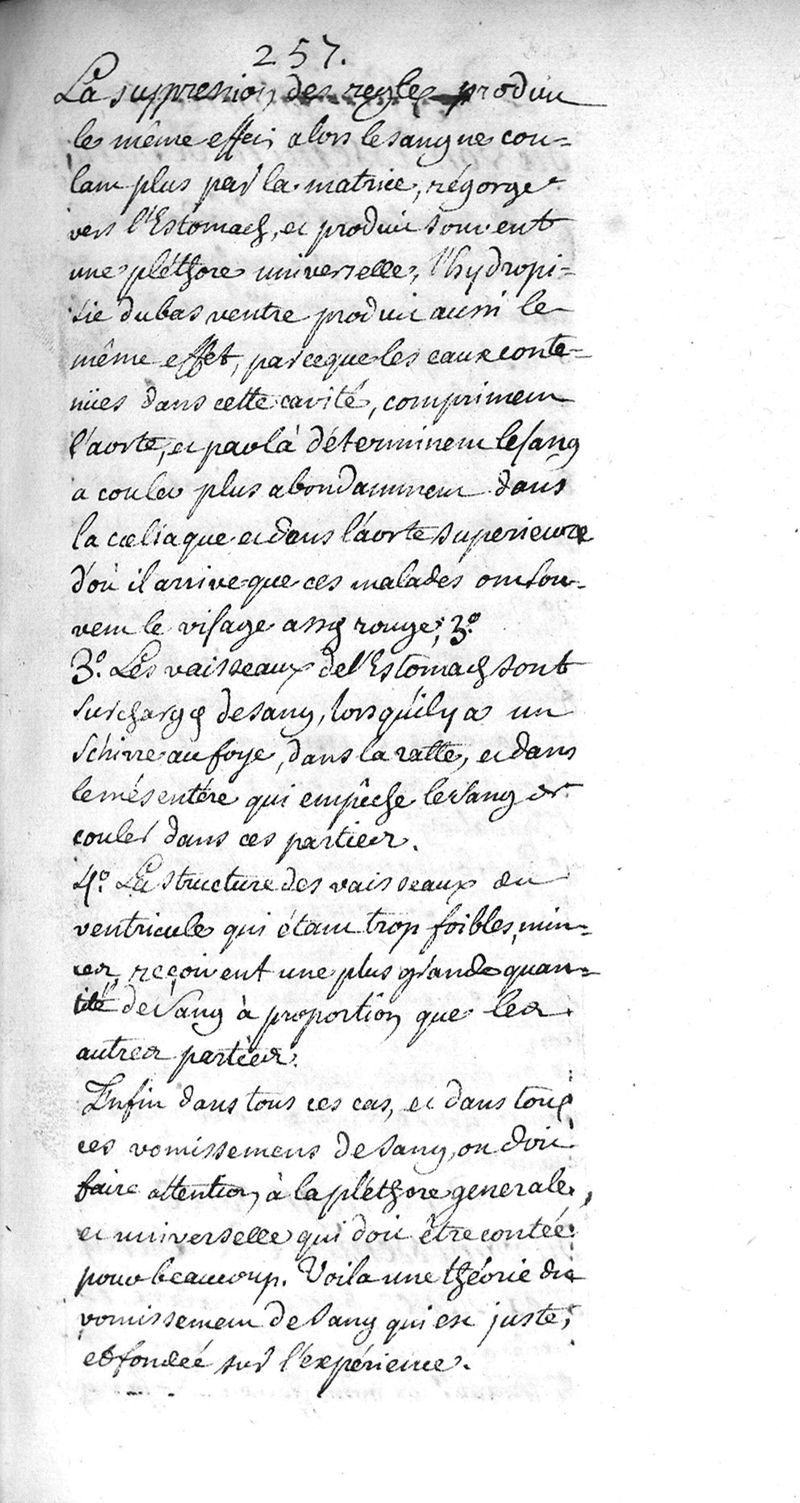 257.
La suppression des regles produit
le même effet; alors le sang ne cou-
lant plus par la matrice, régorge
vers l'Estomach, et produit souvent
une pléthore universelle, l'hydropi-
sie du bas ventre produit aussi le
même effet, parceque les eaux conte-
nües dans cette cavité, compriment
l'aorte, et par là déterminent le sang
a couler plus abondamment dans
la cœliaque et dans l'aorte superieure
d'où il arrive que ces malades ont sou-
vent le visage assés rouge; 3.º
3.º Les vaisseaux de l'Estomach sont
surchargés de sang, lorsqu'il y a un
schirre au foye, dans la ratte, et dans
le mésentére qui empêche le sang de
couler dans ces parties.
4.º La structure des vaisseaux du
ventricule qui étant trop foibles, min-
ces, reçoivent une plus grande quan-
tité de sang à proportion que les
autres parties.
Enfin dans tous ces cas, et dans tous
ces vomissemens de sang, on doit
faire attention à la pléthore generale,
et universelle qui doit être contée
pour beaucoup. Voila une théorie du
vomissement de sang qui est juste,
et fondeé sur l'expérience.